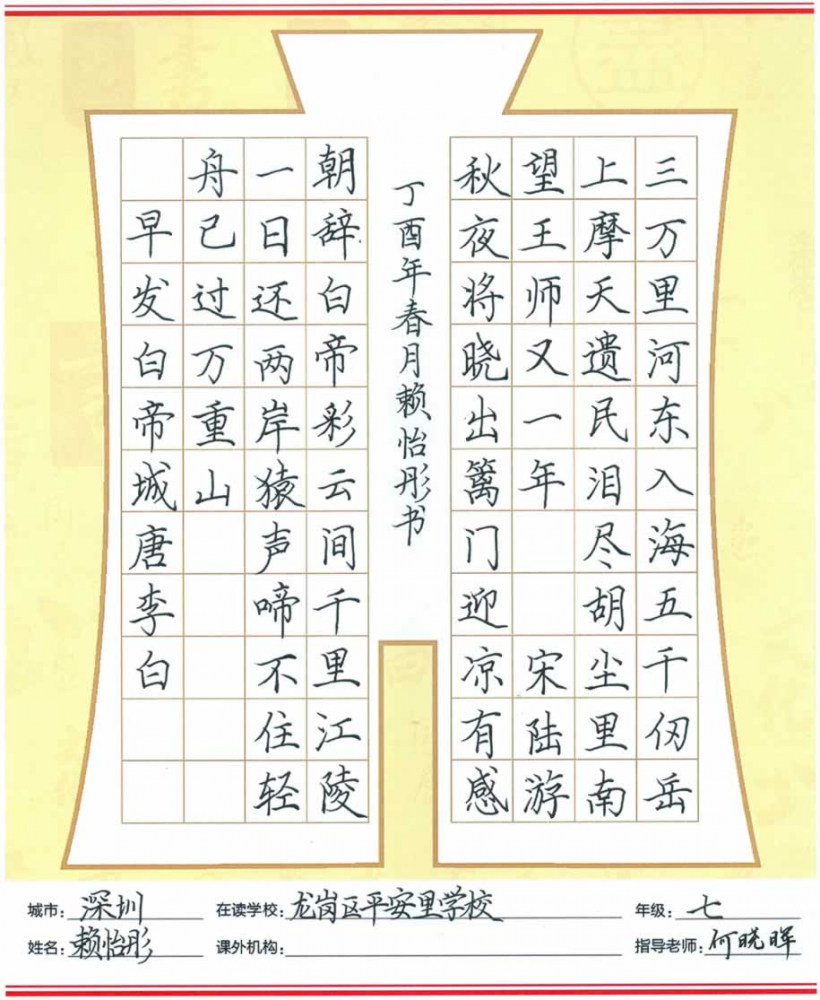 三万里河东入海五千仞岳
上摩天遗民泪尽胡尘里南
望王师又一年 宋陆游
秋夜将晓出篱门迎凉有感
丁酉年春月赖怡彤书
朝辞白帝彩云间千里江陵
一日还两岸猿声啼不住轻
舟已过万重山
早发白帝城唐李白
城市：深圳 在读学校：龙岗区平安里学校 年级：七
姓名：赖怡彤 课外机构： 指导老师：何晓晖